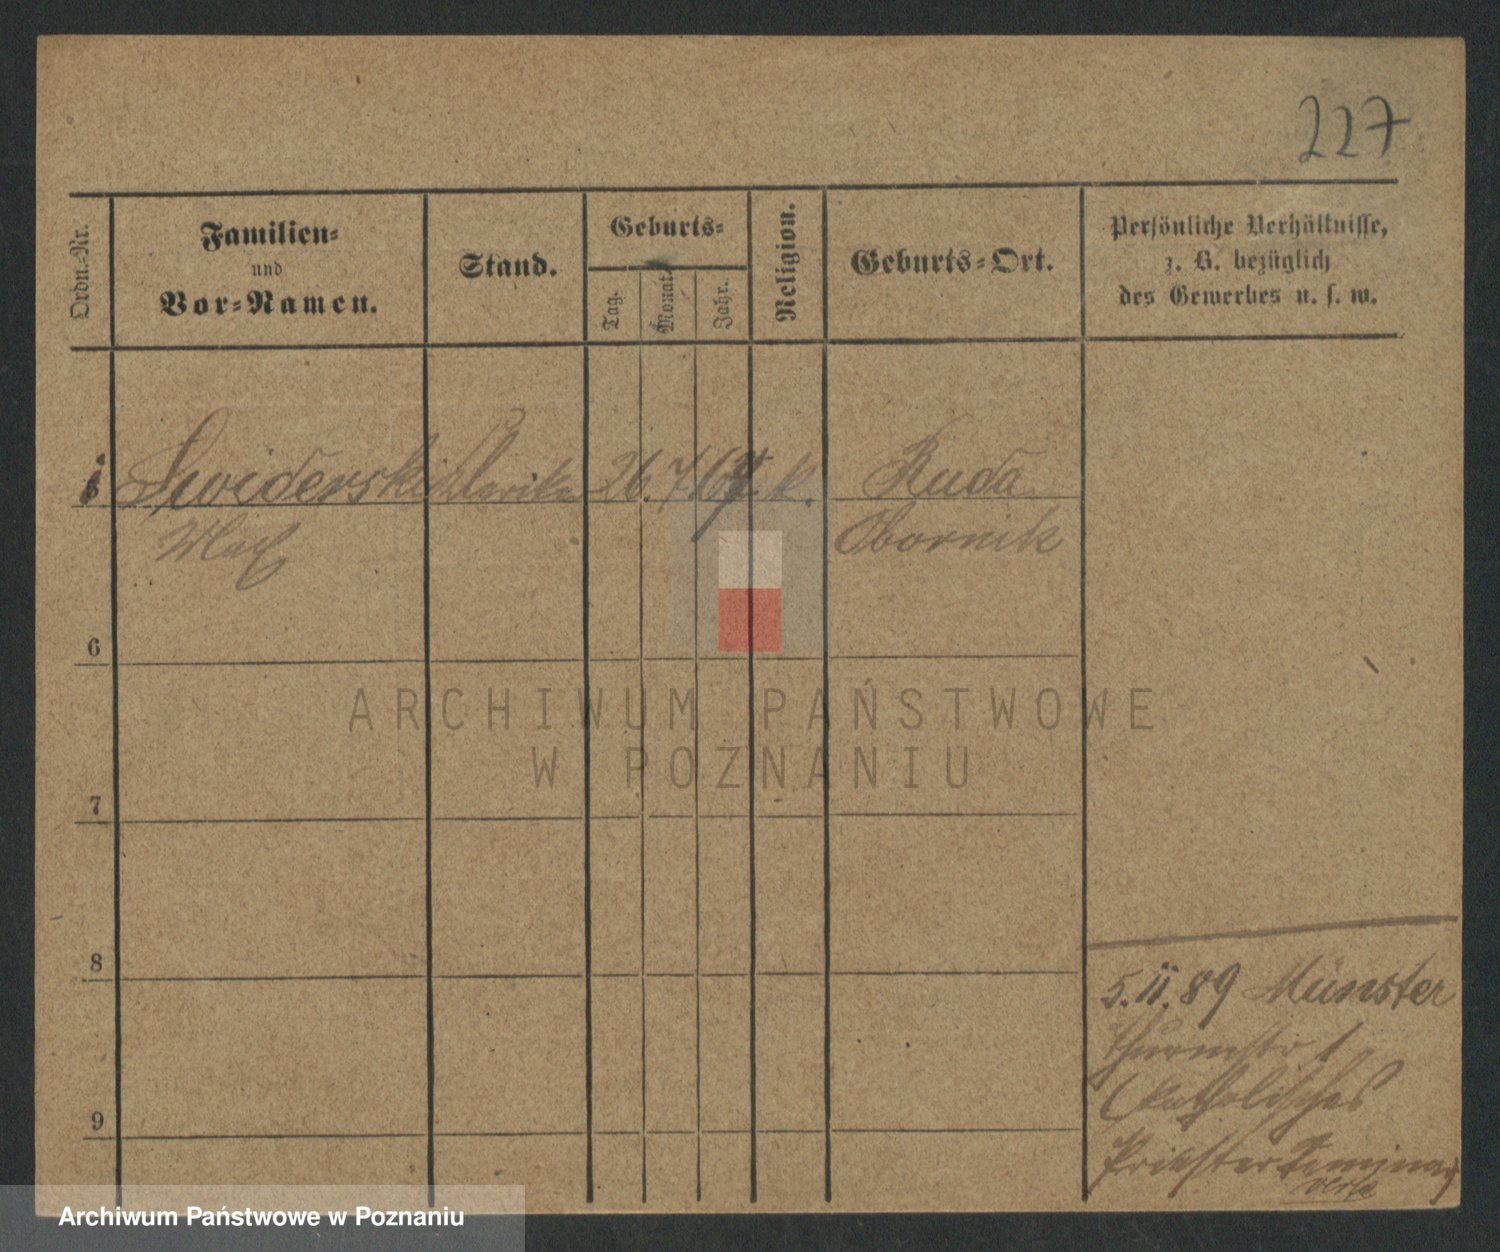 227
Ordn.-Nr.
Familien-
und
Vor-Namen.
Stand.
Geburts-
Tag.
Monat.
Jahr.
Religion.
Geburts-Ort.
Persönliche Verhältnisse,
z. B. bezüglich
des Gewerbes u. s. w.
Swiderski Klerike 26. 7. 64. k. Ruda
Obornik
6
7
8
9
5. 11. 89 Münster
Thurmstr 1
(Katholisches
Priester Seminar)
ARCHIWUM PAŃSTWOWE
W POZNANIU
Archiwum Państwowe w Poznaniu